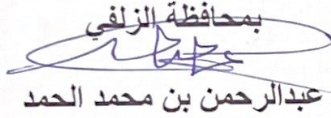 بمحافظة الزلفي
عبدالرحمن بن محمد الحمد